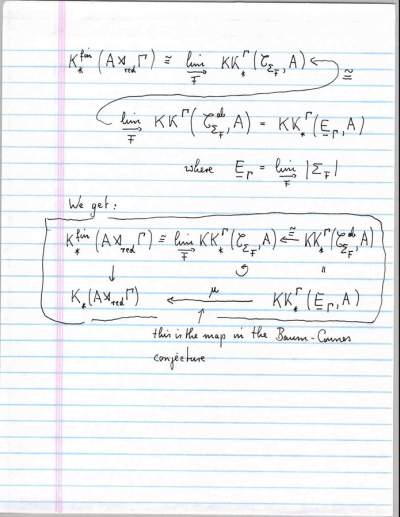 K_*^{fin}(A ⋊_{red} Γ) ≅ lim_{→ F} KK_*^Γ(𝒞_{Σ_F}, A) ≅
lim_{→ F} KK^Γ(𝒞_{Σ_F}^{ab}, A) = KK_*^Γ(E_Γ, A)
where E_Γ = lim_{→ F} |Σ_F|
We get:
K_*^{fin}(A ⋊_{red} Γ) ≅ lim_{→ F} KK_*^Γ(𝒞_{Σ_F}, A) ←^{≅} KK_*^Γ(𝒞_{Σ_F}^{ab}, A)
↓ ↺ =
K_*(A ⋊_{red} Γ) ←^{μ} KK_*^Γ(E_Γ, A)
↑
this is the map in the Baum-Connes
conjecture